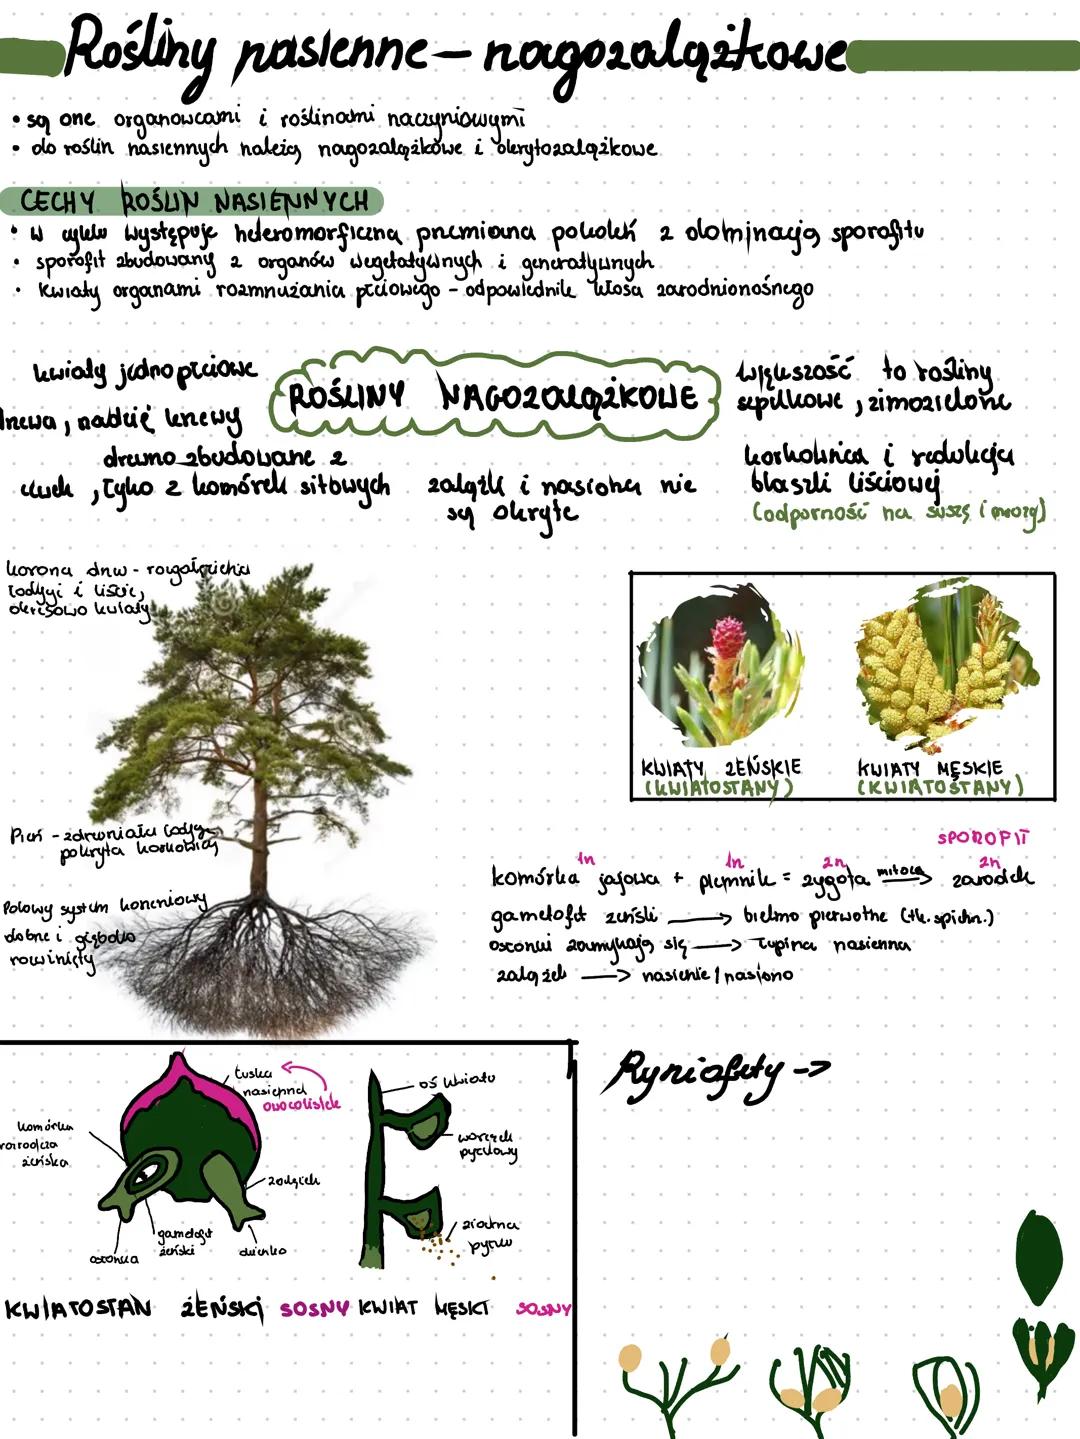 Rośliny nasienne – nagozalążkowe
• są one organowcami i roślinami naczyniowymi
• do roślin nasiennych należą nagozalążkowe i okrytozalążkowe
CECHY ROŚLIN NASIENNYCH
• w cyklu występuje heteromorficzna przemiana pokoleń z dominacją sporofitu
• sporofit zbudowany z organów wegetatywnych i generatywnych
• kwiaty organami rozmnużania płciowego - odpowiednik kłosa zarodnionośnego
kwiaty jednopłciowe
ROŚLINY NAGOZALĄŻKOWE
większość to rośliny
szpilkowe, zimozielone
drzewa, rzadziej krzewy
drewno zbudowane z
cewek, łyko z komórek sitowych
zalążki i nasiona nie
są okryte
korkowica i redukcja
blaszki liściowej
(odporność na suszę i mrozy)
korona drzew - rozgałęzienia
łodygi i liście,
okresowo kwiaty
KWIATY ŻEŃSKIE
(KWIATOSTANY)
KWIATY MĘSKIE
(KWIATOSTANY)
Pień - zdrewniała łodyga
pokryta korkowicą
Palowy system korzeniowy
dobrze i głęboko
rozwinięty
SPOROFIT
1n 1n 2n 2n
komórka jajowa + plemnik = zygota mitoza → zarodek
gametofit żeński → bielmo pierwotne (tk. spichrz.)
osłonki zamykają się → łupina nasienna
zalążek → nasienie / nasiono
łuska
nasienna
owocolistek
komórka
rozrodcza
żeńska
zalążek
gametofit
żeński
osłonka
okienko
oś kwiatu
woreczek
pyłkowy
ziarna
pyłku
KWIATOSTAN ŻEŃSKI SOSNY
KWIAT MĘSKI SOSNY
Ryniofity ->